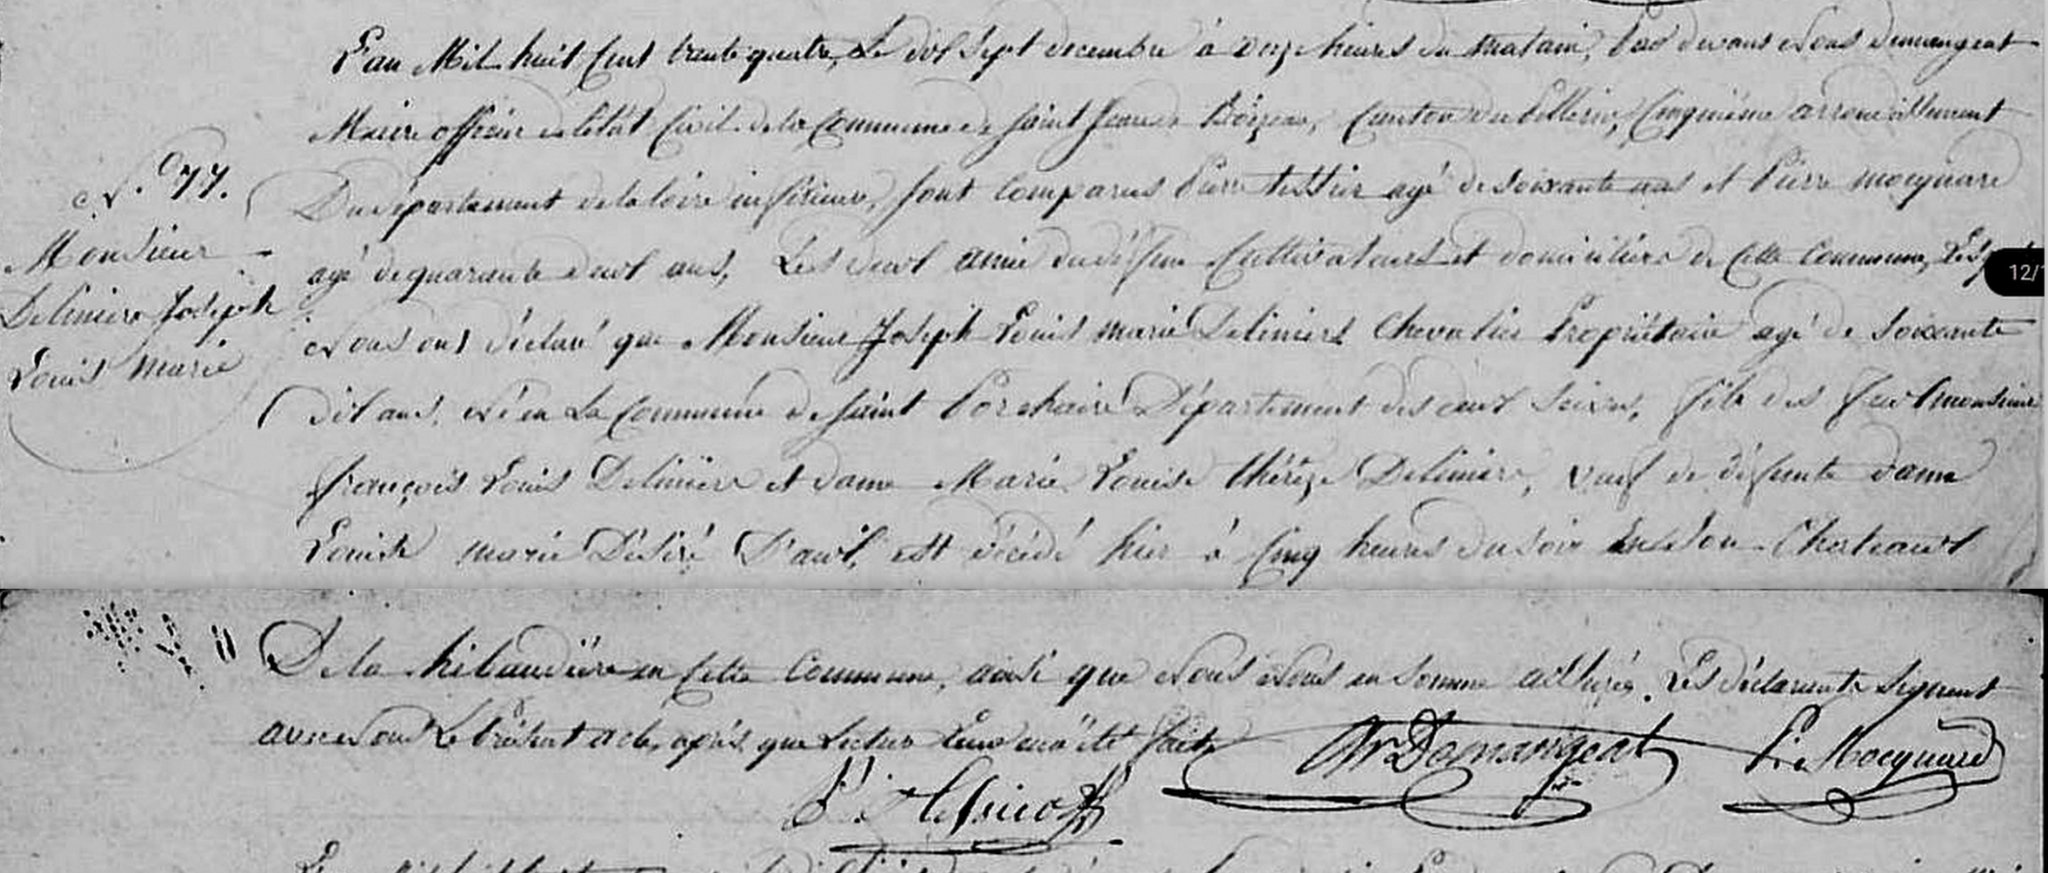 L'an Mil huit Cent trente quatre, Le dix Sept decembre à onze heures du matain, Par devant Nous demangeat
Maire officier de l'état Civil de la Commune de Saint Jean de Boizeau, Canton du Pellerin, Cinquième arrondissement
N. 77.
Du département de la loire inférieure, Sont Comparus Pierre tessier agé de soixante ans et Pierre mocquard
Monsieur
agé de quarante deux ans, Les deux amie du défun Cultivateurs et domiciliés de Cette Commune, Les
12/
Delinière Joseph
Nous ont déclaré que Monsieur Joseph Louis marie Deliniers Chevalier Propriétaire agé de Soixante
Louis marie
dix ans, Né en La Commune de Saint Porchaire Département des deux Seivres, fils des feux monsieur
françois Louis Delinière et dame Marie Louise thérèze Delinière, veuf de défunte dame
Louise marie Désiré D'aux, est décédé hier à Cinq heures du soir En Son Chateaux
De la hibaudière en Cette Commune, ainsi que Nous Nous en somme assurés. Les déclarants Signent
avec Nous Le Présent acte, après que Lecture Leur en à été faite
Domangeat
P. Mocquard
P. Tessier